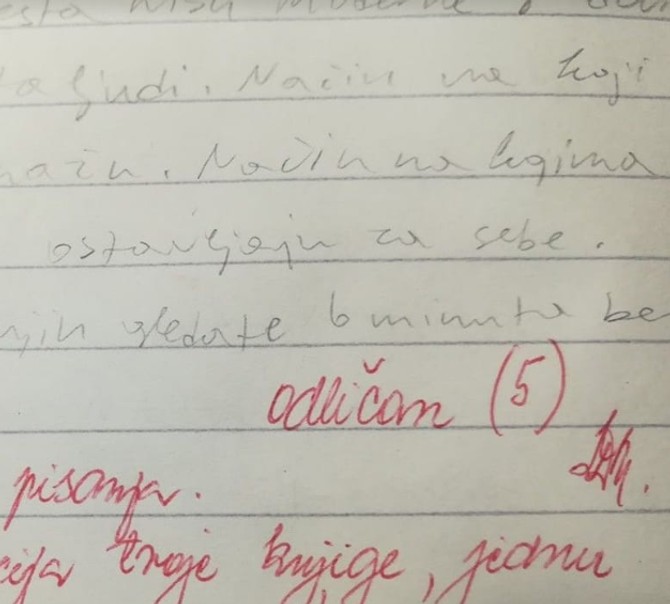 nisu moderne,
ljudi. Način na koji
način. Način na kojima
ostavljaju za sebe.
njih gledate 6 minuta be
odličan (5)
pisanja.
cija tvoje knjige, jednu